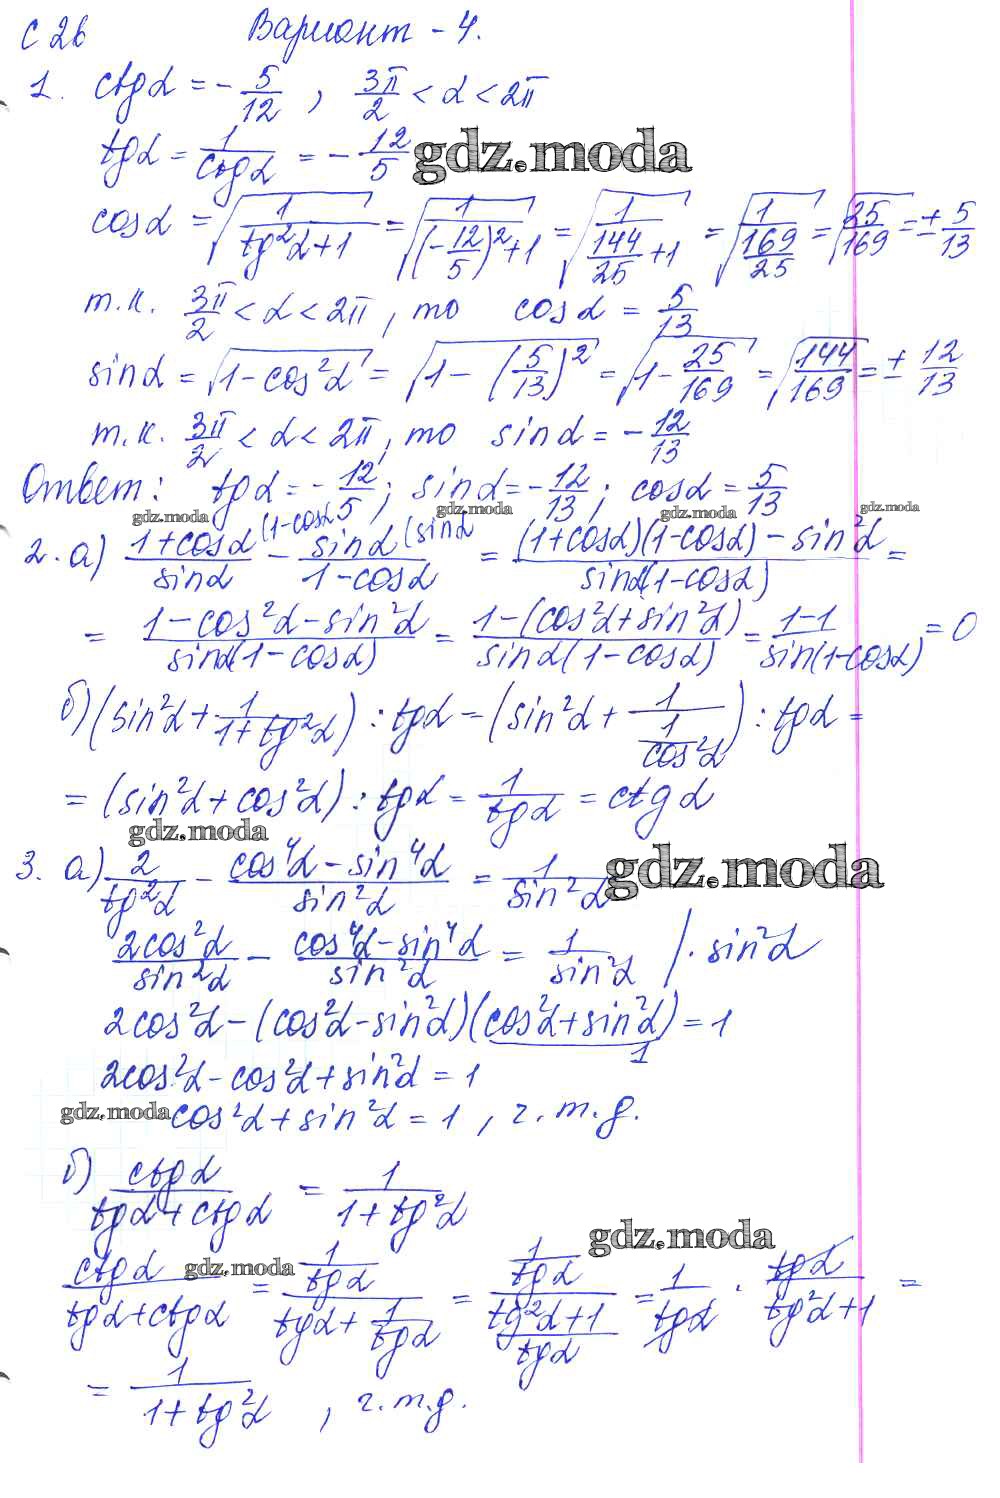 С 26 Вариант - 4.
1. ctgα = - 5/12 , 3π/2 < α < 2π
tgα = 1/ctgα = - 12/5 gdz.moda
cosα = √(1/(tg²α+1)) = √(1/((-12/5)²+1)) = √(1/(144/25+1)) = √(1/(169/25)) = √(25/169) = ± 5/13
т.к. 3π/2 < α < 2π, то cosα = 5/13
sinα = √(1-cos²α) = √(1-(5/13)²) = √(1-25/169) = √(144/169) = ± 12/13
т.к. 3π/2 < α < 2π, то sinα = - 12/13
Ответ: tgα = - 12/5; sinα = - 12/13; cosα = 5/13
gdz.moda gdz.moda gdz.moda gdz.moda
2. а) (1+cosα)/sinα (1-cosα - sinα/(1-cosα) (sinα = ((1+cosα)(1-cosα) - sin²α)/(sinα(1-cosα)) =
= (1-cos²α-sin²α)/(sinα(1-cosα)) = (1-(cos²α+sin²α))/(sinα(1-cosα)) = (1-1)/(sin(1-cosα)) = 0
б) (sin²α + 1/(1+tg²α)) : tgα = (sin²α + 1/(1/cos²α)) : tgα =
= (sin²α+cos²α) : tgα = 1/tgα = ctgα
gdz.moda
3. а) 2/tg²α - (cos⁴α - sin⁴α)/sin²α = 1/sin²α gdz.moda
2cos²α/sin²α - (cos⁴α-sin⁴α)/sin²α = 1/sin²α /· sin²α
2cos²α - (cos²α-sin²α)(cos²α+sin²α) = 1
1
2cos²α - cos²α + sin²α = 1
gdz.moda cos²α + sin²α = 1 , ч.т.д.
б) ctgα/(tgα+ctgα) = 1/(1+tg²α)
gdz.moda
ctgα/(tgα+ctgα) gdz.moda = (1/tgα)/(tgα+1/tgα) = (1/tgα)/((tg²α+1)/tgα) = 1/tgα · tgα/(tg²α+1) =
= 1/(1+tg²α) , ч.т.д.